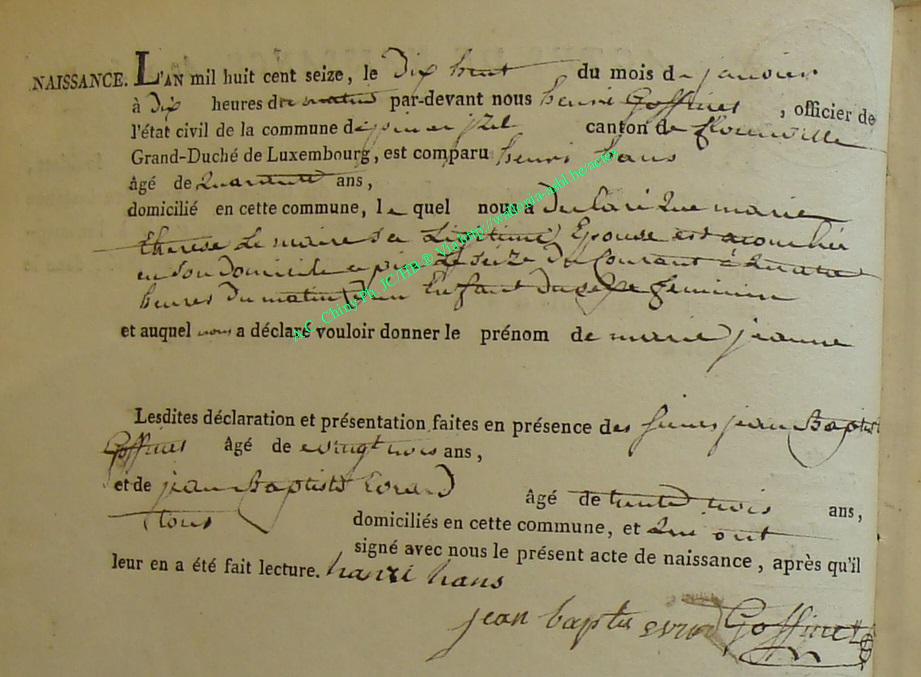 NAISSANCE. L'AN mil huit cent seize, le dix huit du mois de janvier
à dix heures du matin par-devant nous henri Goffinet, officier de
l'état civil de la commune de canton de florenville
Grand-Duché de Luxembourg, est comparu henri hans
âgé de quarante ans,
domicilié en cette commune, le quel nous a declaré que marie
therese le maire sa Legitime Epouse est acouchée
en son domicile a pin le seize du Courant à quatre
heures du matin d'un Enfant du sexe feminin
et auquel nous a déclaré vouloir donner le prénom de marie jeanne
Lesdites déclaration et présentation faites en présence des jean Baptist
Goffinet âgé de vingt trois ans,
et de jean Baptist Evrard âgé de trente trois ans,
tous domiciliés en cette commune, et qui ont
signé avec nous le présent acte de naissance, après qu'il
leur en a été fait lecture. hanri hans
jean baptis evrard Goffinet